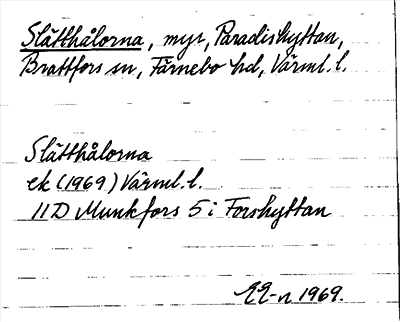 Slätthålorna, myr, Paradishyttan,
Brattfors sn, Färnebo hd, Värml. l.
Slätthålorna
ek (1969) Värml. l.
11D Munkfors 5 i Forshyttan
EE-n 1969.